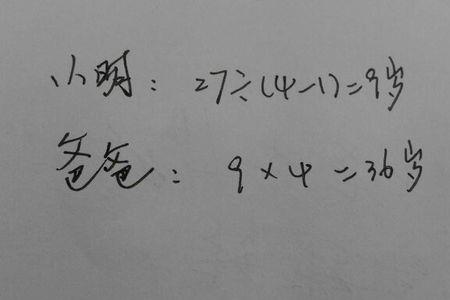 小明：27÷(4-1)=9岁
爸爸：9×4=36岁